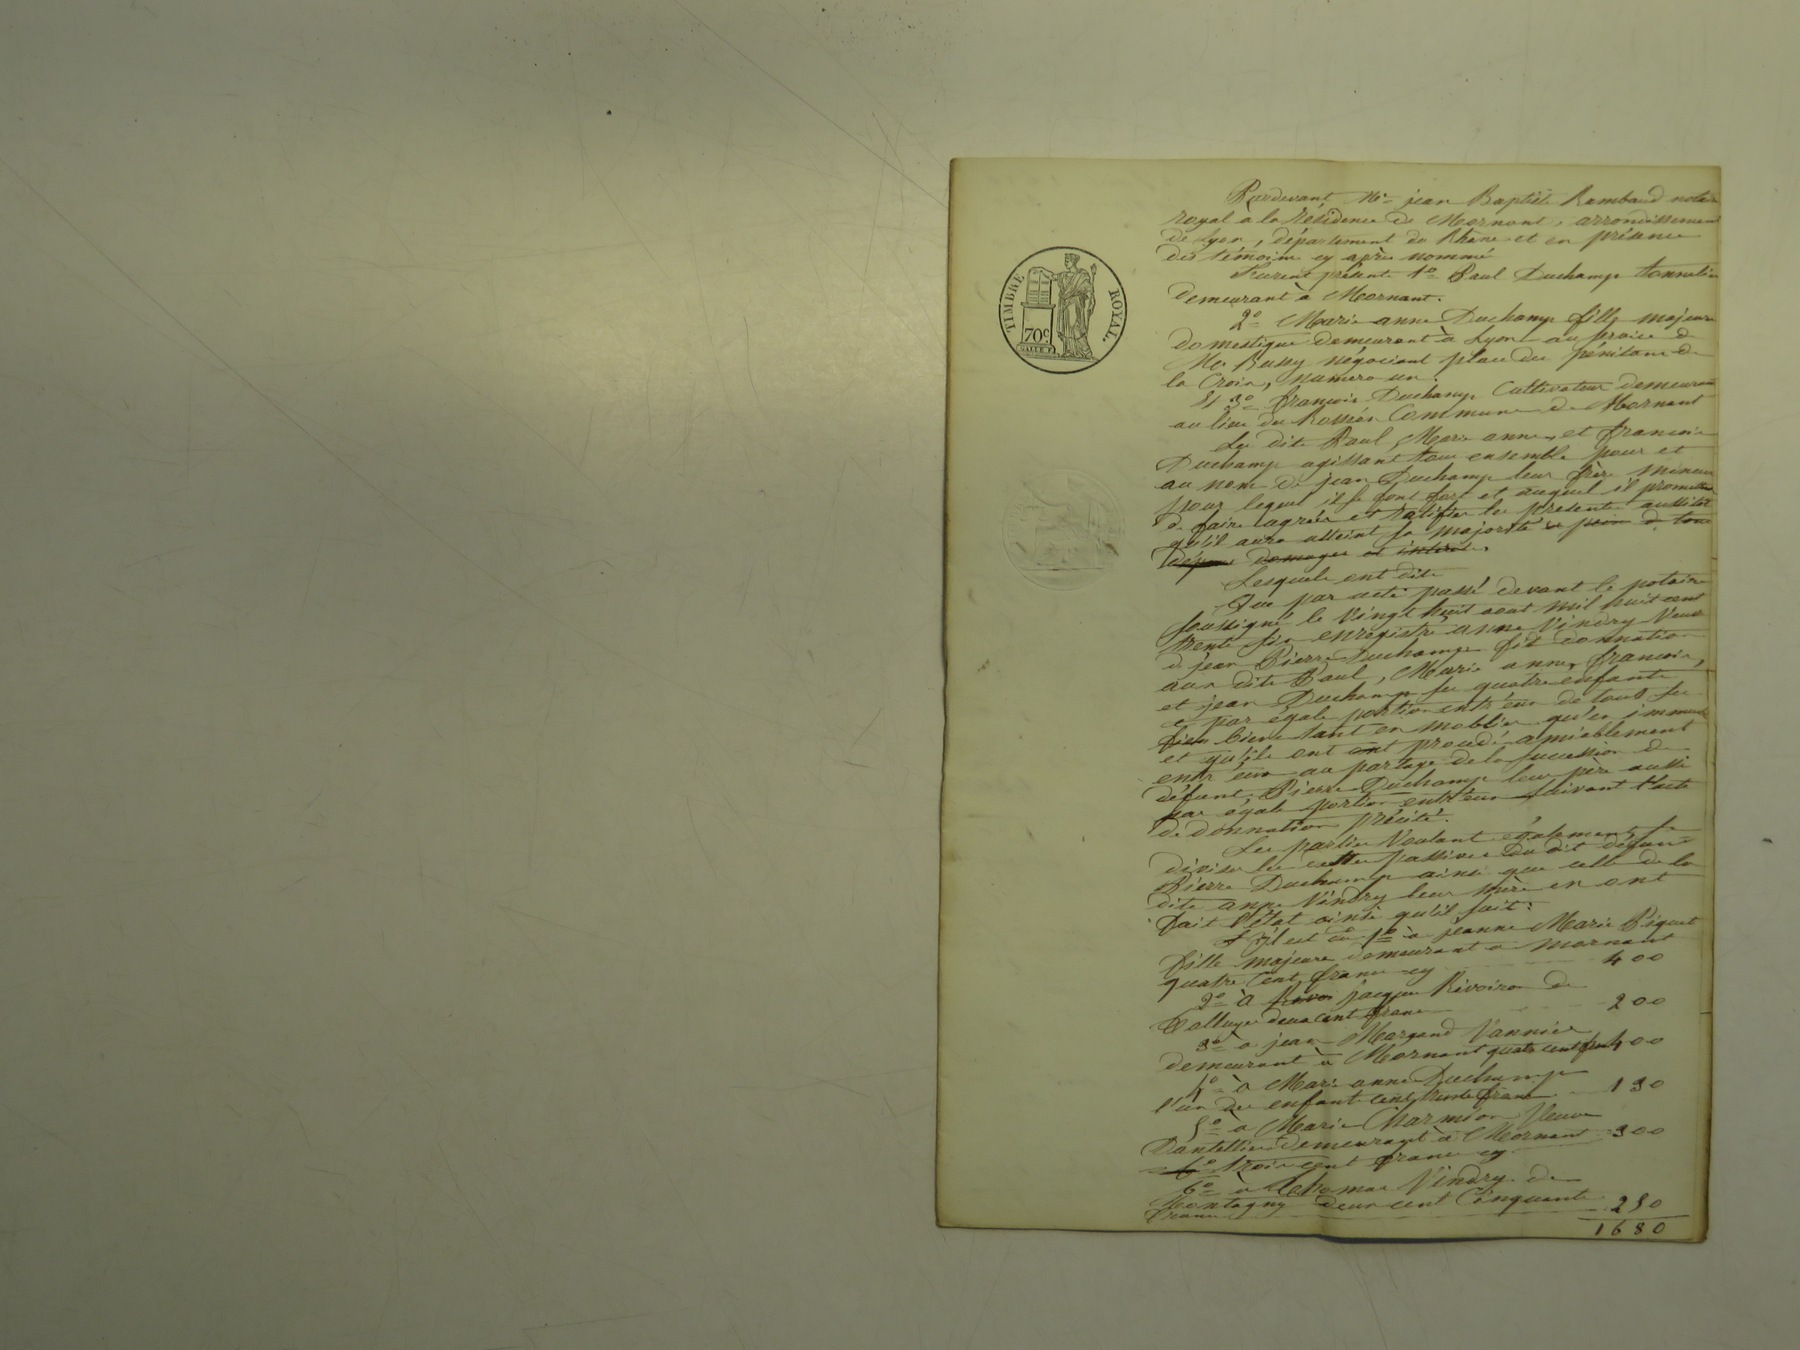 TIMBRE ROYAL.
70c
Pardevant Me jean Baptiste Rambaud notaire
royal à la résidence de Mornant, arrondissement
de Lyon, département du Rhône et en présence
des témoins cy après nommé
Furent présent 1o Paul Duchamp tonnelier
demeurant à Mornant.
2o Marie anne Duchamp fille majeure
domestique demeurant à Lyon au service de
Mr Bussy négociant place des pénitans de
la Croix, numero un.
Et 3o françois Duchamp Cultivateur demeurant
au lieu du Rosséon Commune de Mornant
Les dits Paul, Marie anne, et françois
Duchamp agissant tous ensemble pour et
au nom de jean Duchamp leur frère mineur
pour lequel ils se font fort et auquel il promettent
de faire agréer et ratifier les présente aussitot
qu'il aura atteint sa majorité a peine de tous
dépens domages et intérêts.
Lesquels ont dits
Que par acte passé devant le notaire
soussigné le vingt huit aout mil huit cent
trente six enregistré anne Vindry Veuve
de jean Pierre Duchamp fit donnation
aux dits Paul, Marie anne, françois,
et jean Duchamp ses quatre enfants
et par égale portion entr'eux de tous ses
biens tant en moblier qu'en immeuble
et qu'ils ont ont procédé amiablement
entr'eux au partage de la succession de
défunt Pierre Duchamp leur père aussi
par égale portion entr'eux suivant l'acte
de donnation précité.
Les parties Voulant également se
diviser les dettes passives du dit défunt
Pierre Duchamp ainsi que celle de la
dite anne Vindry leur mère en ont
fait l'état ainsi qu'il suit:
Il est dû 1o à jeanne Marie Piquet
fille majeure demeurant à Mornant
quatre Cent francs cy 400
2o à jacques Rivoiron de
Talluyé deux cent francs 200
3o à jean Morgand Vannier
demeurant à Mornant quatre cent francs 400
4o à Marie anne Duchamp
l'un des enfants cent trente francs 130
5o à Marie Charmion Veuve
Dantellier demeurant à Mornant 300
6o trois cent francs cy
6o à Thomas Vindry de
Montagny deux cent Cinquante
francs 250
1680